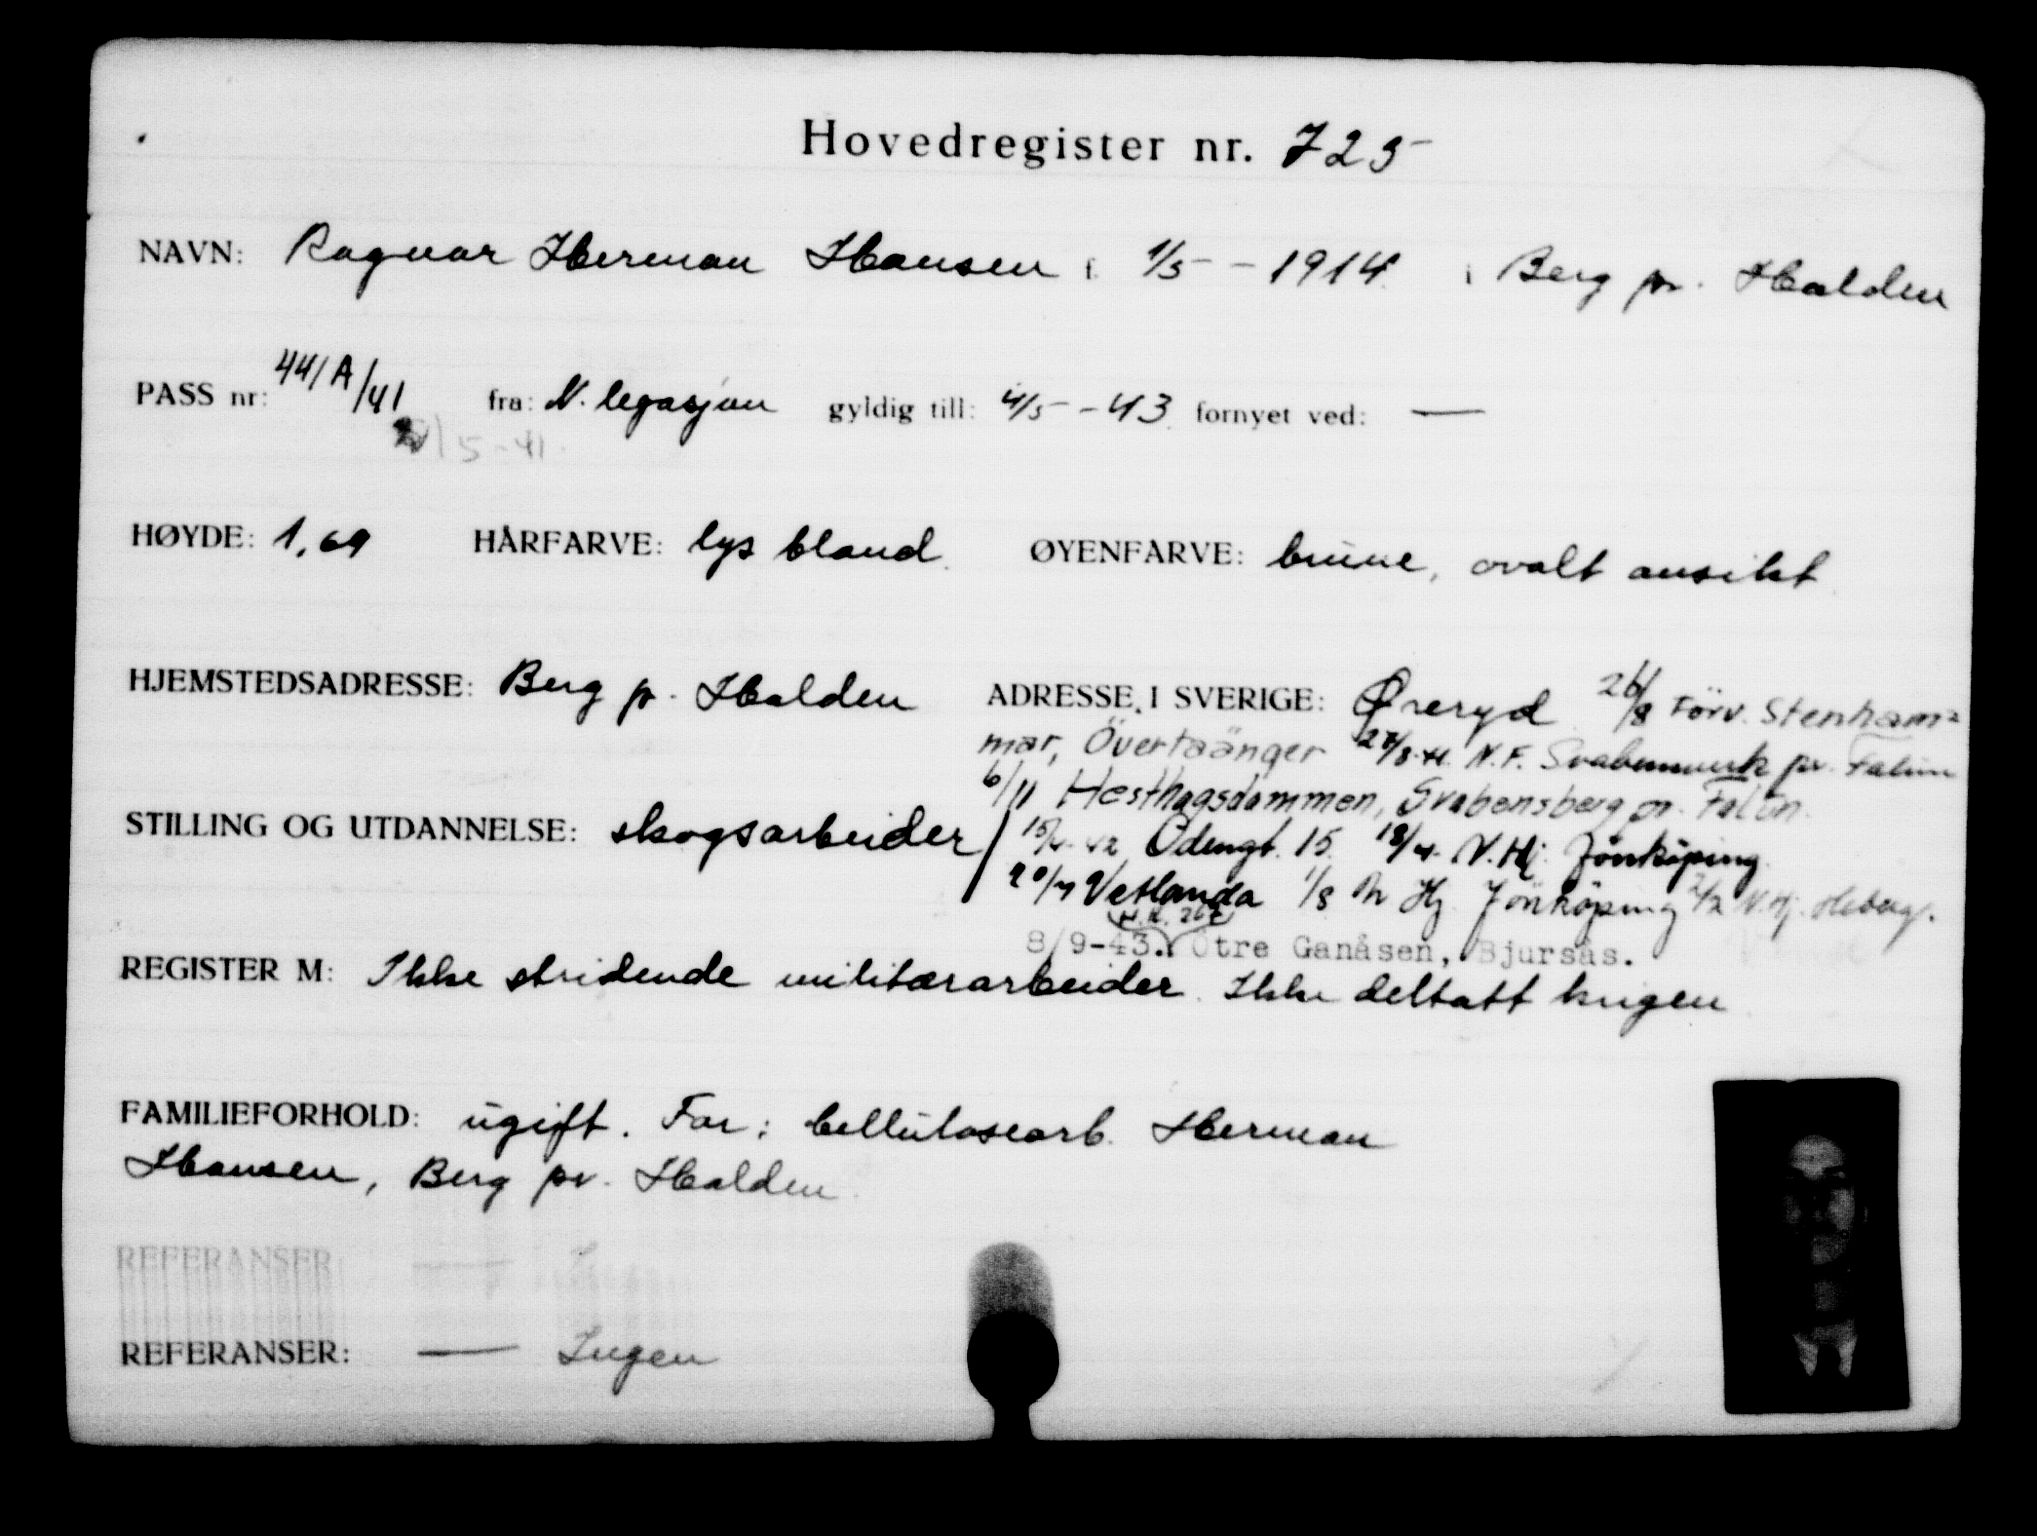 Hovedregister nr. 725
NAVN: Ragnar Herman Hansen f. 1/5 - 1914. i Berg pr. Halden
PASS nr: 441A/41 fra: N. legasjon gyldig till: 4/5 - 43 fornyet ved: —
/5-41.
HØYDE: 1,69 HÅRFARVE: lys blond. ØYENFARVE: brune, ovalt ansikt.
HJEMSTEDSADRESSE: Berg p. Halden ADRESSE I SVERIGE: Øreryd 26/8 Förv. Stenham=
mar, Övertaänger 27/8-41. N.F. pr. Falun
6/11 Hesthagsdammen, Svabensberg pr. Falun.
STILLING OG UTDANNELSE: skogsarbeider / 15/4-42 Odengt. 15. 18/4. N.Hj. Jönköping.
20/4 Vetlanda 1/8 N Hj. Jönköping 2/2 N.Hj.
8/9-43. Otre Ganåsen, Bjursås.
REGISTER M: Ikke stridende militærarbeider. Ikke deltatt krigen
FAMILIEFORHOLD: ugift. Far: cellulosearb. Herman
Hansen, Berg pr. Halden.
REFERANSER: — Ingen